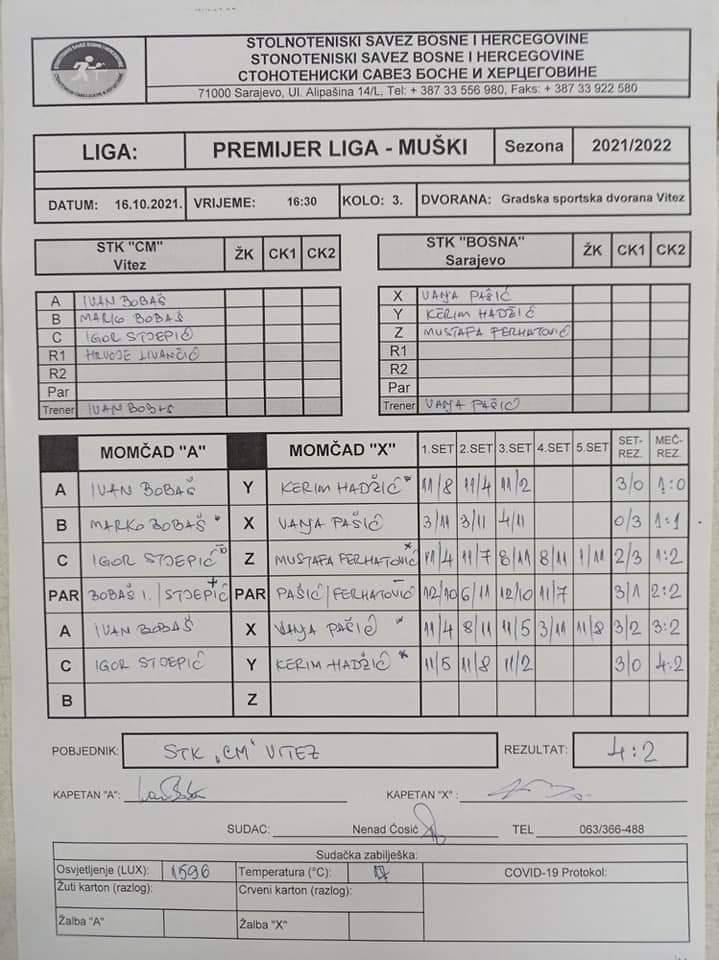 STOLNOTENISKI SAVEZ BOSNE I HERCEGOVINE
STONOTENISKI SAVEZ BOSNE I HERCEGOVINE
СТОНОТЕНИСКИ САВЕЗ БОСНЕ И ХЕРЦЕГОВИНЕ
71000 Sarajevo, Ul. Alipašina 14/L, Tel: + 387 33 556 980, Faks: + 387 33 922 580
LIGA: PREMIJER LIGA - MUŠKI Sezona 2021/2022
DATUM: 16.10.2021. VRIJEME: 16:30 KOLO: 3. DVORANA: Gradska sportska dvorana Vitez
STK "CM" Vitez ŽK CK1 CK2
STK "BOSNA" Sarajevo ŽK CK1 CK2
A IVAN BOBAŠ
B MARKO BOBAŠ
C IGOR STJEPIĆ
R1 HRVOJE LIVANČIĆ
R2
Par
Trener IVAN BOBAŠ
X VANJA PAŠIĆ
Y KERIM HADŽIĆ
Z MUSTAFA FERHATOVIĆ
R1
R2
Par
Trener VANJA PAŠIĆ
MOMČAD "A" MOMČAD "X" 1.SET 2.SET 3.SET 4.SET 5.SET SET-REZ. MEČ-REZ.
A IVAN BOBAŠ Y KERIM HADŽIĆ 11/8 11/4 11/2 3/0 1:0
B MARKO BOBAŠ X VANJA PAŠIĆ 3/11 3/11 4/11 0/3 1:1
C IGOR STJEPIĆ Z MUSTAFA FERHATOVIĆ 11/4 11/7 8/11 8/11 1/11 2/3 1:2
PAR BOBAŠ I. / STJEPIĆ PAR PAŠIĆ / FERHATOVIĆ 12/10 6/11 12/10 11/7 3/1 2:2
A IVAN BOBAŠ X VANJA PAŠIĆ 11/4 8/11 11/5 3/11 11/8 3/2 3:2
C IGOR STJEPIĆ Y KERIM HADŽIĆ 11/5 11/8 11/2 3/0 4:2
B Z
POBJEDNIK: STK „CM" VITEZ REZULTAT: 4:2
KAPETAN "A": KAPETAN "X" :
SUDAC: Nenad Čosić TEL 063/366-488
Sudačka zabilješka:
Osvjetljenje (LUX): 1596 Temperatura (°C): COVID-19 Protokol:
Žuti karton (razlog): Crveni karton (razlog):
Žalba "A" Žalba "X"